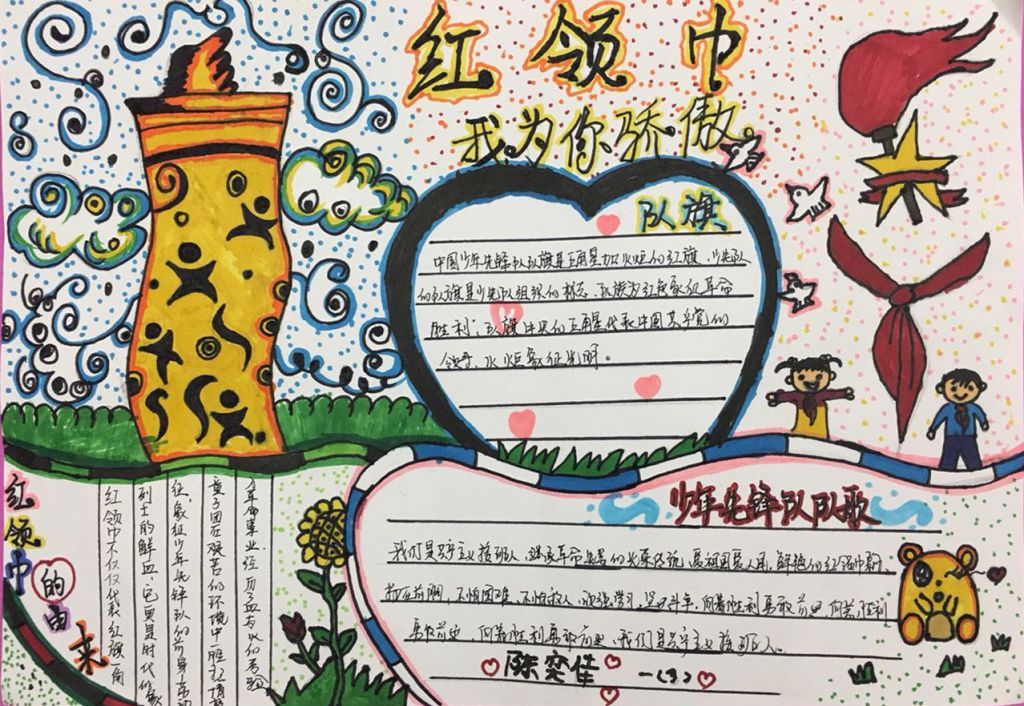 红领巾
我为你骄傲
队旗
中国少年先锋队队旗是五角星加火炬的红旗，少先队
的队旗是少先队组织的标志，队旗为红色象征革命
胜利；队旗中央的五角星代表中国共产党的
领导，火炬象征光明。
少年先锋队队歌
我们是共产主义接班人，继承革命先辈的光荣传统，爱祖国爱人民，鲜艳的红领巾飘
不怕困难，不怕敌人，顽强学习，坚决斗争，向着胜利勇敢前进，向着胜利
勇敢前进，向着胜利勇敢前进，我们是共产主义接班人。
陈奕佳 一（3）
红领巾的由来
红领巾不仅仅代表红旗一角
烈士的鲜血；它更是时代的象
征象征少年先锋队的
童子团在艰苦的环境中
革命事业，经历了血与火的考验